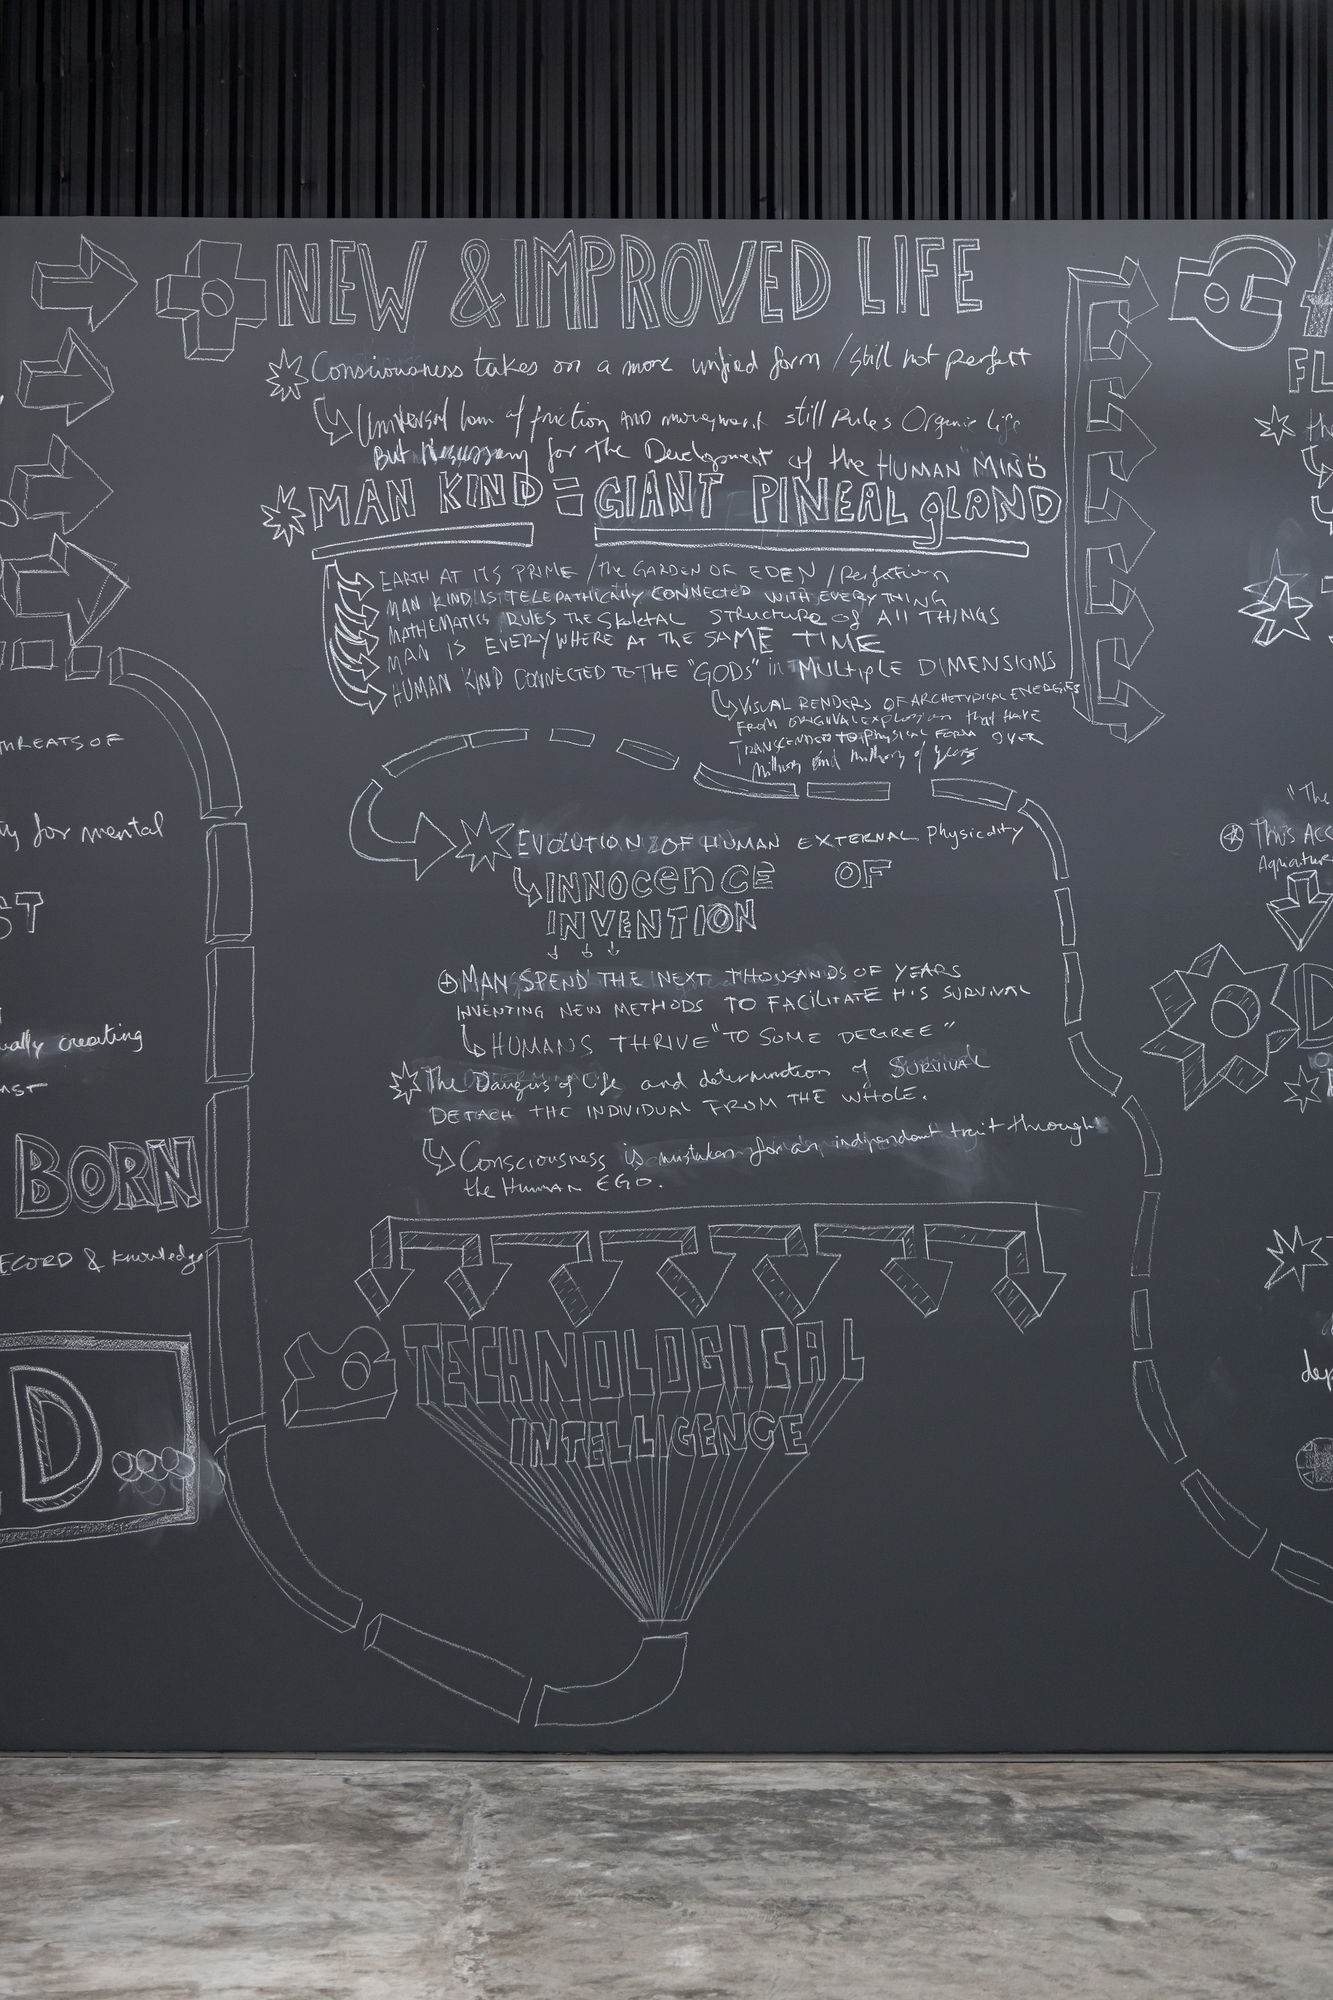 NEW & IMPROVED LIFE
Consciousness takes on a more unified form / still not perfect
Universal law of friction AND movement still Rules Organic Life
But Necessary for The Development of the HUMAN "MIND
MAN KIND = GIANT PINEAL gLAND
EARTH AT ITS PRIME / the GARDEN OF EDEN / Perfection
MAN KIND IS TELEPATHICALLY CONNECTED WITH EVERYTHING
MATHEMATICS RULES THE Skeletal Structure of All THINGS
MAN IS EVERYWHERE AT the SAME TIME
HUMAN KIND CONNECTED TO THE "GODS" in MULTIPLE DIMENSIONS
VISUAL RENDERS OF ARCHETYPICAL ENERGIES
FROM ORIGINAL explosion that HAVE
TRANSCENDED TO physical FORM OVER
millions and millions of years
EVOLUTION OF HUMAN EXTERNAL Physicality
INNOCENCE OF
INVENTION
MAN SPEND THE NEXT THOUSANDS OF YEARS
INVENTING NEW METHODS TO FACILITATE HIS SURVIVAL
HUMANS THRIVE "TO SOME DEGREE"
The Dangers of Life and determination of SURVIVAL
DETACH THE INDIVIDUAL FROM THE WHOLE.
Consciousness is mistaken for an independant trait through
the Human EGO.
TECHNOLOGICAL
INTELLIGENCE
THREATS OF
for mental
ST
creating
BORN
RECORD & knowledge
D...
G
FL
the
"The
This Acc
Aquature
D
dep